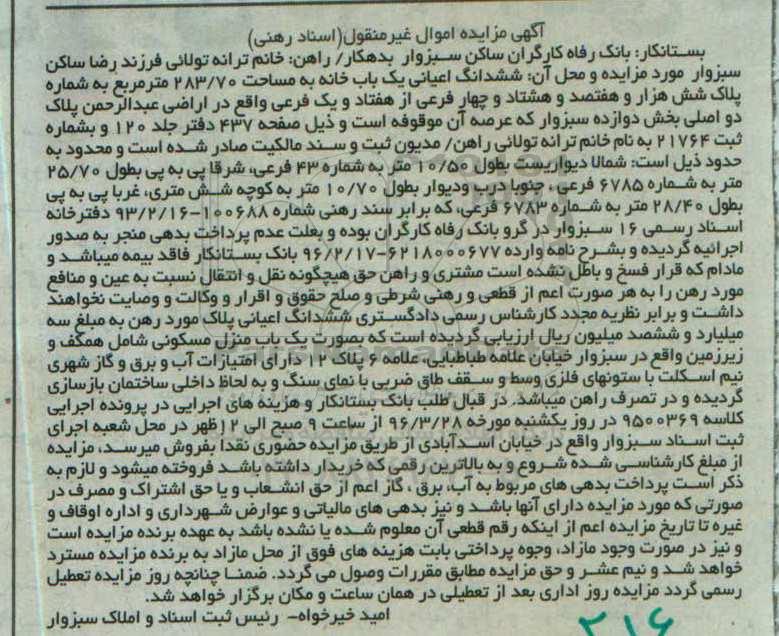 آگهی مزایده اموال غیرمنقول(اسناد رهنی)
بستانکار: بانک رفاه کارگران ساکن سبزوار بدهکار/ راهن: خانم ترانه تولائی فرزند رضا ساکن
سبزوار مورد مزایده و محل آن: ششدانگ اعیانی یک باب خانه به مساحت ۲۸۳/۷۰ مترمربع به شماره
پلاک شش هزار و هفتصد و هشتاد و چهار فرعی از هفتاد و یک فرعی واقع در اراضی عبدالرحمن پلاک
دو اصلی بخش دوازده سبزوار که عرصه آن موقوفه است و ذیل صفحه ۴۳۷ دفتر جلد ۱۲۰ و بشماره
ثبت ۲۱۷۶۴ به نام خانم ترانه تولائی راهن/ مدیون ثبت و سند مالکیت صادر شده است و محدود به
حدود ذیل است: شمالا دیواریست بطول ۱۰/۵۰ متر به شماره ۴۳ فرعی، شرقا پی به پی بطول ۲۵/۷۰
متر به شماره ۶۷۸۵ فرعی ، جنوبا درب ودیوار بطول ۱۰/۷۰ متر به کوچه شش متری، غربا پی به پی
بطول ۲۸/۴۰ متر به شماره ۶۷۸۳ فرعی، که برابر سند رهنی شماره ۱۰۰۶۸۸-۹۳/۲/۱۶ دفترخانه
اسناد رسمی ۱۶ سبزوار در گرو بانک رفاه کارگران بوده و بعلت عدم پرداخت بدهی منجر به صدور
اجرائیه گردیده و بشرح نامه وارده ۶۲۱۸۰۰۰۶۷۷-۹۶/۲/۱۷ بانک بستانکار فاقد بیمه میباشد و
مادام که قرار فسخ و باطل نشده است مشتری و راهن حق هیچگونه نقل و انتقال نسبت به عین و منافع
مورد رهن را به هر صورت اعم از قطعی و رهنی شرطی و صلح حقوق و اقرار و وکالت و وصایت نخواهند
داشت و برابر نظریه مجدد کارشناس رسمی دادگستری ششدانگ اعیانی پلاک مورد رهن به مبلغ سه
میلیارد و ششصد میلیون ریال ارزیابی گردیده است که بصورت یک باب منزل مسکونی شامل همکف و
زیرزمین واقع در سبزوار خیابان علامه طباطبایی، علامه ۶ پلاک ۱۲ دارای امتیازات آب و برق و گاز شهری
نیم اسکلت با ستونهای فلزی وسط و سقف طاق ضربی با نمای سنگ و به لحاظ داخلی ساختمان بازسازی
گردیده و در تصرف راهن میباشد. در قبال طلب بانک بستانکار و هزینه های اجرایی در پرونده اجرایی
کلاسه ۹۵۰۰۳۶۹ در روز یکشنبه مورخه ۹۶/۳/۲۸ از ساعت ۹ صبح الی ۱۲ظهر در محل شعبه اجرای
ثبت اسناد سبزوار واقع در خیابان اسدآبادی از طریق مزایده حضوری نقدا بفروش میرسد، مزایده
از مبلغ کارشناسی شده شروع و به بالاترین رقمی که خریدار داشته باشد فروخته میشود و لازم به
ذکر است پرداخت بدهی های مربوط به آب، برق ، گاز اعم از حق انشعاب و یا حق اشتراک و مصرف در
صورتی که مورد مزایده دارای آنها باشد و نیز بدهی های مالیاتی و عوارض شهرداری و اداره اوقاف و
غیره تا تاریخ مزایده اعم از اینکه رقم قطعی آن معلوم شده یا نشده باشد به عهده برنده مزایده است
و نیز در صورت وجود مازاد، وجوه پرداختی بابت هزینه های فوق از محل مازاد به برنده مزایده مسترد
خواهد شد و نیم عشر و حق مزایده مطابق مقررات وصول می گردد. ضمنا چنانچه روز مزایده تعطیل
رسمی گردد مزایده روز اداری بعد از تعطیلی در همان ساعت و مکان برگزار خواهد شد.
امید خیرخواه- رئیس ثبت اسناد و املاک سبزوار
۲۱۶